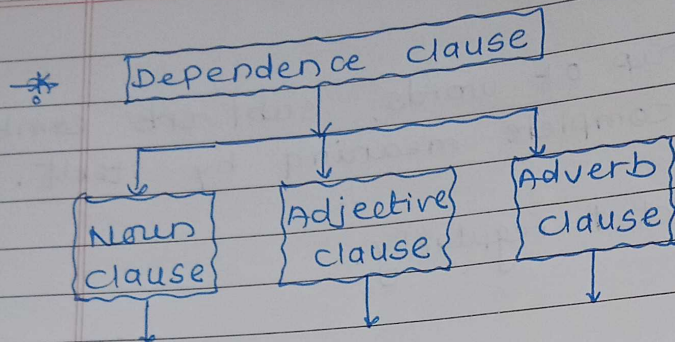 Dependence clause
Noun
clause
Adjective
clause
Adverb
clause